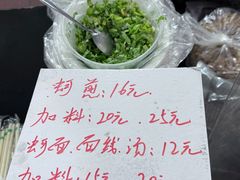 蚵煎:16元.
加料:20元.25元
蚵面.面线.汤:12元
加料:15元.20